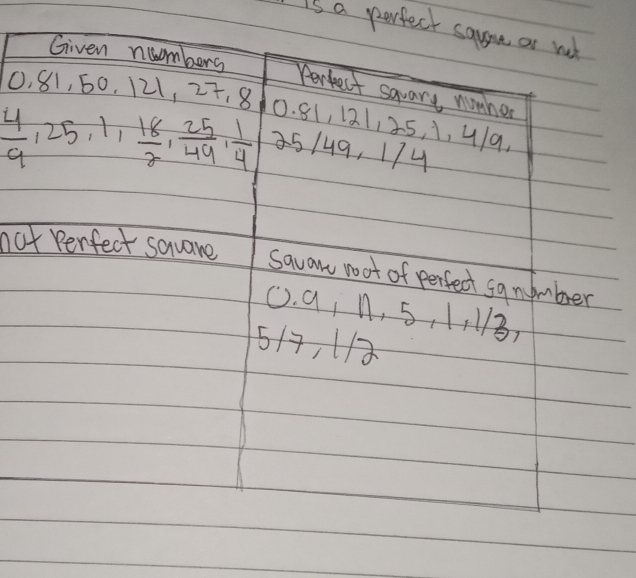 is a perfect square or not
Given numbers
Perfect square number
0.81, 50, 121, 27, 8
0.81, 121, 25, 1, 4/9,
4/9, 25, 1, 18/2, 25/49, 1/4
25/49, 1/4
not Perfect square
Square root of perfect sq number
0.9, 11, 5, 1, 1/3,
5/7, 1/2